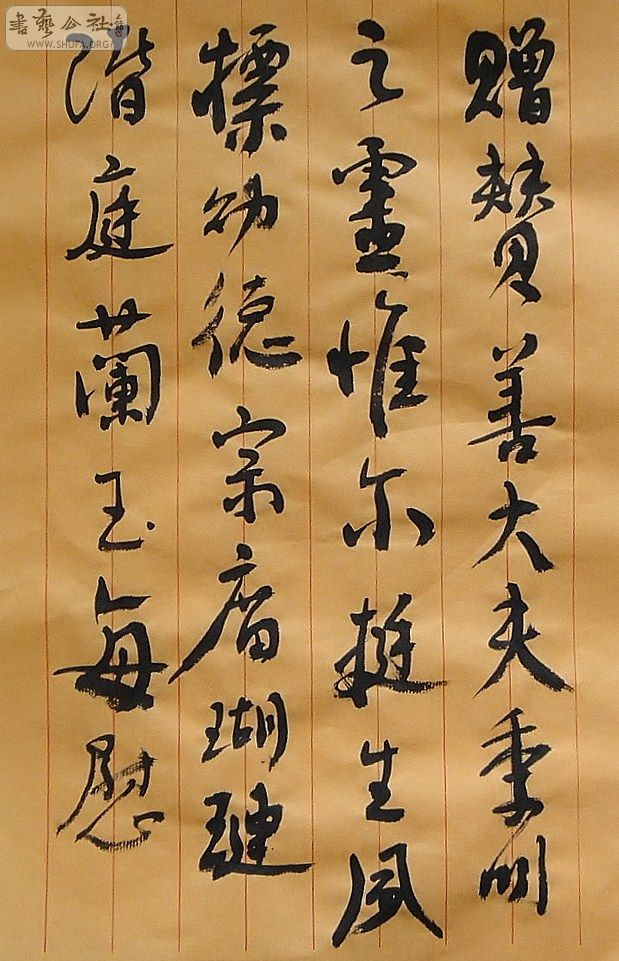 赠赞善大夫季明
之靈惟尔挺生夙
標幼德宗庿瑚璉
階庭蘭玉每慰
書藝公社
WWW.SHUFA.ORG